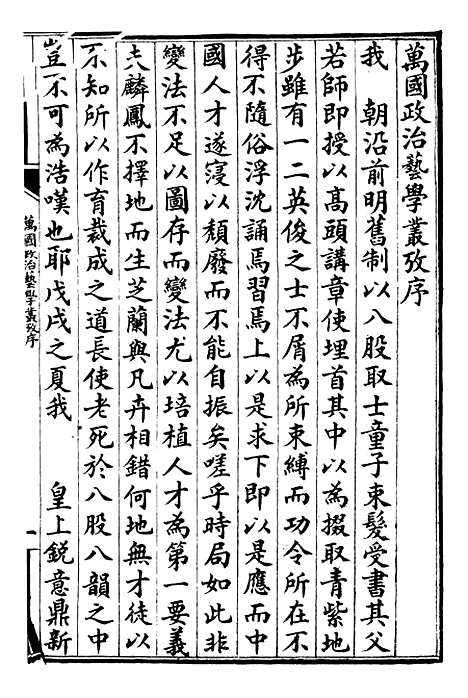 萬國政治藝學叢攷序
我　朝沿前明舊制以八股取士童子束髮受書其父
若師即授以高頭講章使埋首其中以為掇取青紫地
步雖有一二英俊之士不屑為所束縛而功令所在不
得不隨俗浮沈誦焉習焉上以是求下即以是應而中
國人才遂寖以頹廢而不能自振矣嗟乎時局如此非
變法不足以圖存而變法尤以培植人才為第一要義
夫麟鳳不擇地而生芝蘭與凡卉相錯何地無才徒以
不知所以作育裁成之道長使老死於八股八韻之中
豈不可為浩嘆也耶戊戌之夏我　　皇上銳意鼎新
萬國政治藝學叢攷序